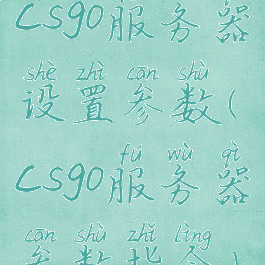 CSgo服务器
shè zhì cān shù
设置参数(
fú wù qì
CSgo服务器
cān shù zhǐ lìng
参数指令)